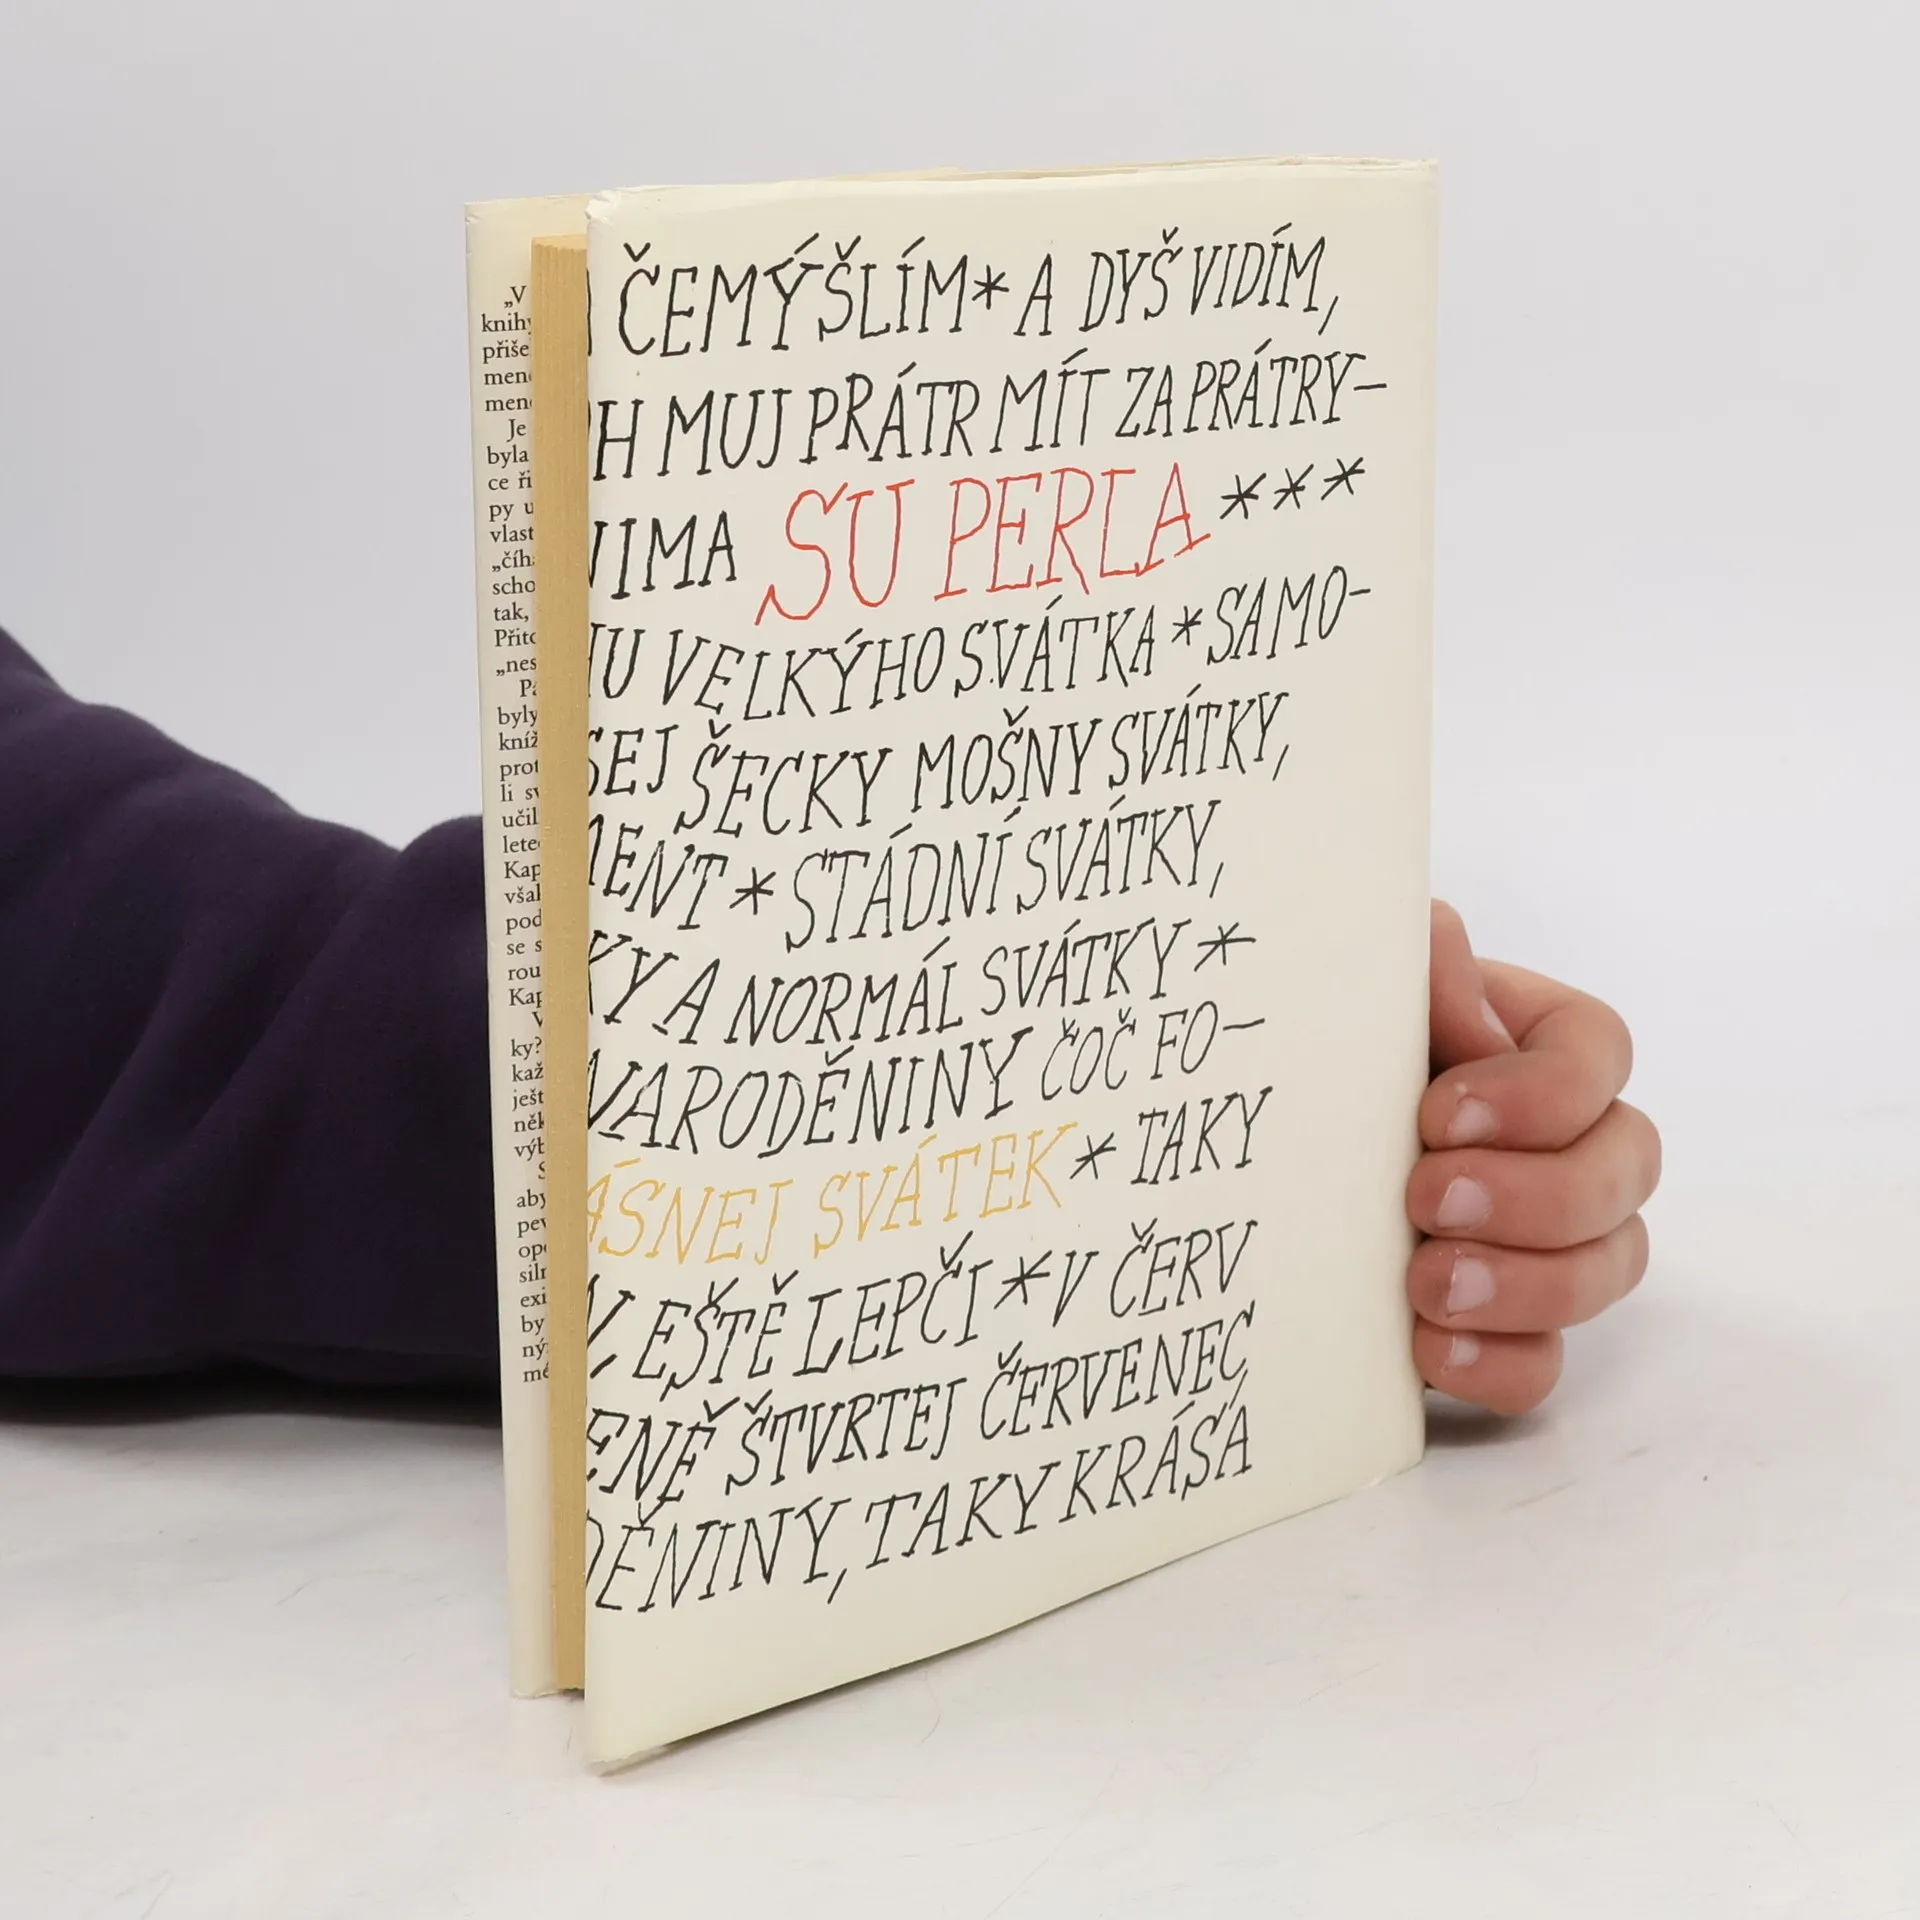 „V
knihy
přiše
men
men
Je
byla
ce ři
py u
vlast
„číh
scho
tak,
Přito
„nes
Pa
byly
kníž
prot
li sv
učil
lete
Kap
však
pod
se s
rou
Kap
V
ky?
kaž
ješt
něk
výb
S
aby
pev
op
siln
exi
by
ný
mé
ČEMÝŠLÍM * A DYŠ VIDÍM,
H MUJ PRÁTR MÍT ZA PRÁTRY-
IMA SU PERLA ***
U VELKÝHO SVÁTKA * SAMO-
SEJ ŠECKY MOŠNY SVÁTKY,
ENT * STÁDNÍ SVÁTKY,
KY A NORMÁL SVÁTKY *
NARODĚNINY ČOČ FO-
ÁSNEJ SVÁTEK * TAKY
EŠTĚ LEPČI * V ČERV
ENĚ ŠTVRTEJ ČERVENEC,
DĚNINY, TAKY KRÁSA